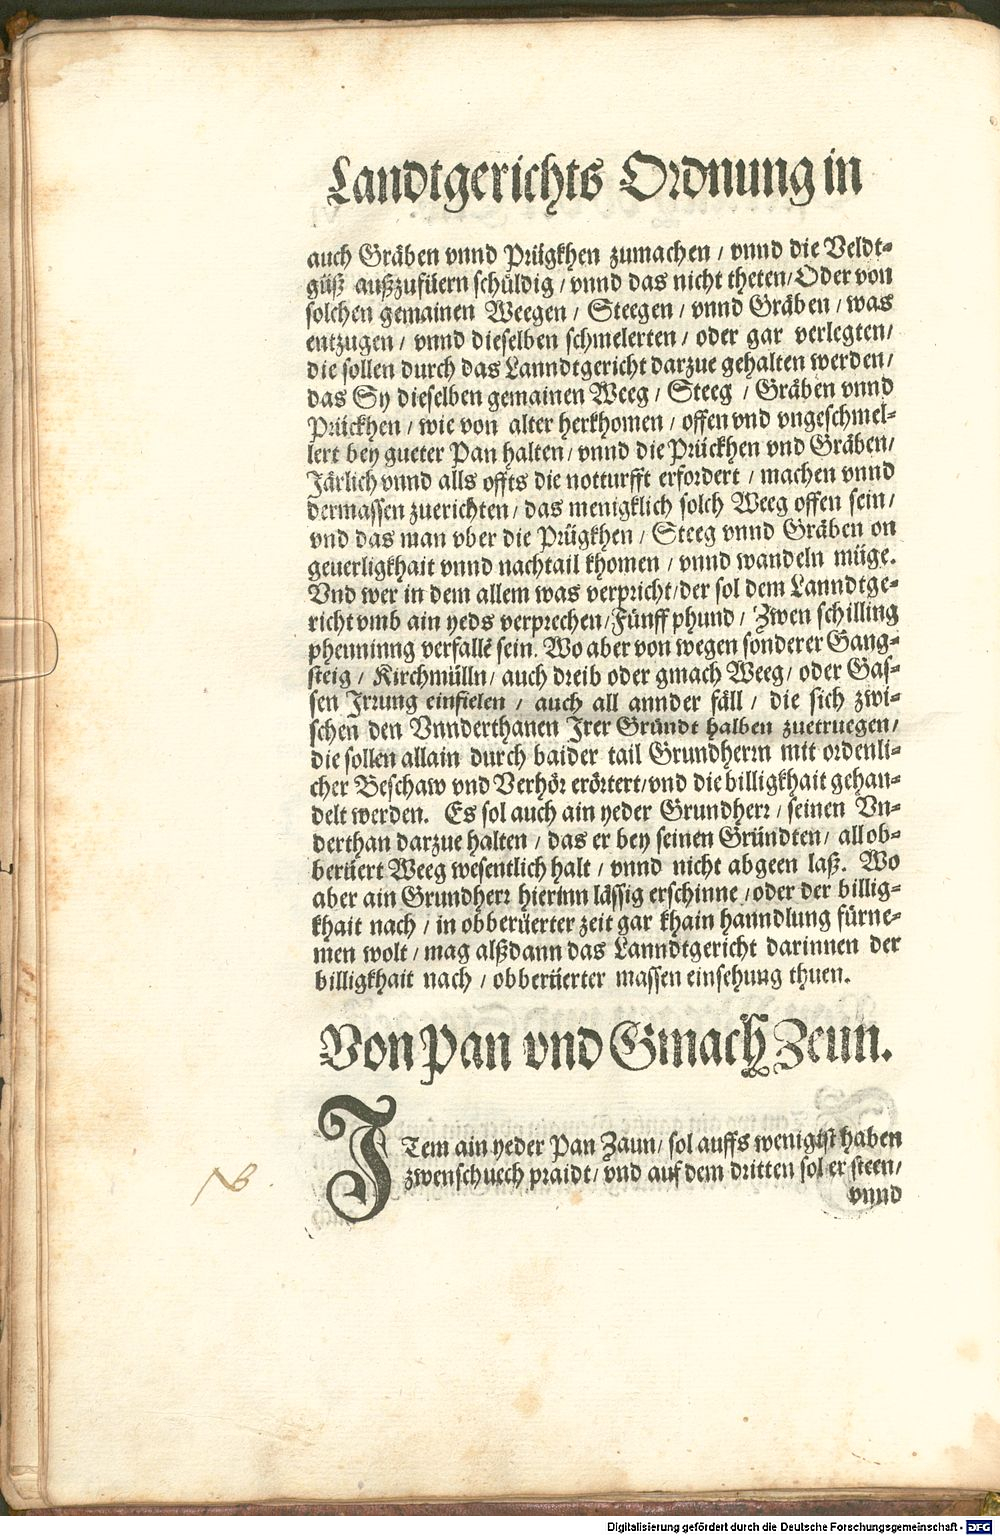 Landtgerichts Ordnung in
auch Gräben vnnd Prügkhen zumachen / vnnd die Veldt-
güß außzufüern schüldig / vnnd das nicht theten / Oder von
solchen gemainen Weegen / Steegen / vnnd Gräben / was
entzugen / vnnd dieselben schmelerten / oder gar verlegten /
die sollen durch das Lanndtgericht darzue gehalten werden /
das Sy dieselben gemainen Weeg / Steeg / Gräben vnnd
Prückhen / wie von alter herkhomen / offen vnd vngeschmel-
lert bey gueter Pan halten / vnnd die Prückhen vnd Gräben /
Järlich vnnd alls offts die notturfft erfordert / machen vnnd
dermassen zuerichten / das menigklich solch Weeg offen sein /
vnd das man vber die Prügkhen / Steeg vnnd Gräben on
geuerligkhait vnnd nachtail khomen / vnnd wandeln müge.
Vnd wer in dem allem was verpricht / der sol dem Lanndtge-
richt vmb ain yeds verprechen / Fünff phund / Zwen schilling
phenninng verfallē sein. Wo aber von wegen sonderer Gang-
steig / Kirchmülln / auch dreib oder gmach Weeg / oder Gas-
sen Irrung einfielen / auch all annder fäll / die sich zwi-
schen den Vnnderthanen Irer Gründt halben zuetruegen /
die sollen allain durch baider tail Grundherrn mit ordenli-
cher Beschaw vnd Verhör erörtert / vnd die billigkhait gehan-
delt werden. Es sol auch ain yeder Grundherr / seinen Vn-
derthan darzue halten / das er bey seinen Gründten / all ob-
berüert Weeg wesentlich halt / vnnd nicht abgeen laß. Wo
aber ain Grundherr hierinn lässig erschinne / oder der billig-
khait nach / in obberüerter zeit gar khain hanndlung fürne-
men wolt / mag alßdann das Lanndtgericht darinnen der
billigkhait nach / obberüerter massen einsehung thuen.
Von Pan vnd Gmach Zeun.
ITem ain yeder Pan Zaun / sol auffs wenigist haben
zwen schuech praidt / vnd auf dem dritten sol er steen /
vnnd
NB.
Digitalisierung gefördert durch die Deutsche Forschungsgemeinschaft - DFG